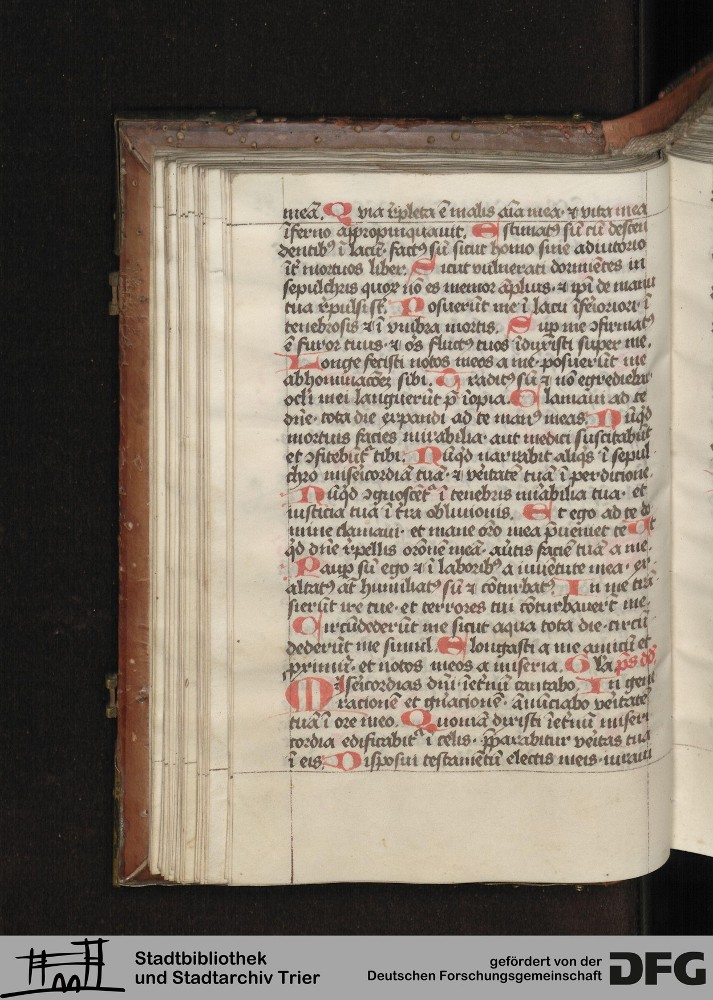 mea. Quia r̄pleta ē malis aīa mea· ⁊ vita mea
īferno appropinquauit. Estimatꝰ sū cū descen
dentibꝰ ī lacū· factꝰ sū sicut homo sine adiutorio
īt̄ mortuos liber. Sicut vulnerati dormiētes in
sepulchris quoꝝ nō es memor āpliꝰ· ⁊ ip̄i de manu
tua r̄pulsi sūt. Posuerūt me ī lacu īferiori· ī
tenebrosis ⁊ ī vmbra mortis. Sup me ↄfirmatꝰ
ē furor tuus· ⁊ oēs fluctꝰ tuos īduxisti super me.
Longe fecisti notos meos a me· posuerūt me
abhominacōeꝫ sibi. Traditꝰ sū ⁊ nō egrediebar
ocl̄i mei languerūt p̄ īopia. Clamaui ad te
dn̄e· tota die expandi ad te manꝰ meas. Nūqd
mortuis facies mirabilia· aut medici suscitabūt
et ↄfitebūt᷑ tibi. Nūqd narrabit aliqs ī sepul
chro misericordiā tuā· ⁊ veritatē tuā ī perdicione.
Nūqd ↄgnoscet᷑ ī tenebris mirabilia tua· et
iusticia tua ī t̄ra obliuionis. Et ego ad te do
mine clamaui· et mane or̄o mea p̄ueniet te Vt
qd dn̄e r̄pellis oronē meā· au̾tis faciē tuā a me.
Paup sū ego ⁊ ī laboribꝰ a iuuētute mea· ex
altatꝰ aūt humiliatꝰ sū ⁊ cōturbatꝰ. In me trā
sierūt ire tue· et terrores tui cōturbauer̄t me·
Circūdederūt me sicut aqua tota die· circū
dederūt me simul. Elongasti a me amicū et
proximū· et notos meos a miseria. Gl̄a ps dd
Misericordias dn̄i· īet̾nū cantabo. In gene
rationē et gn̄acionē· ānūciabo veritatē
tuā ī ore meo. Quoniā dixisti īet̾nū miseri
cordia edificabit᷑ ī celis· p̄parabitur veritas tua
ī eis. Disposui testamētū electis meis· iuraui
Stadtbibliothek
und Stadtarchiv Trier
gefördert von der
Deutschen Forschungsgemeinschaft
DFG